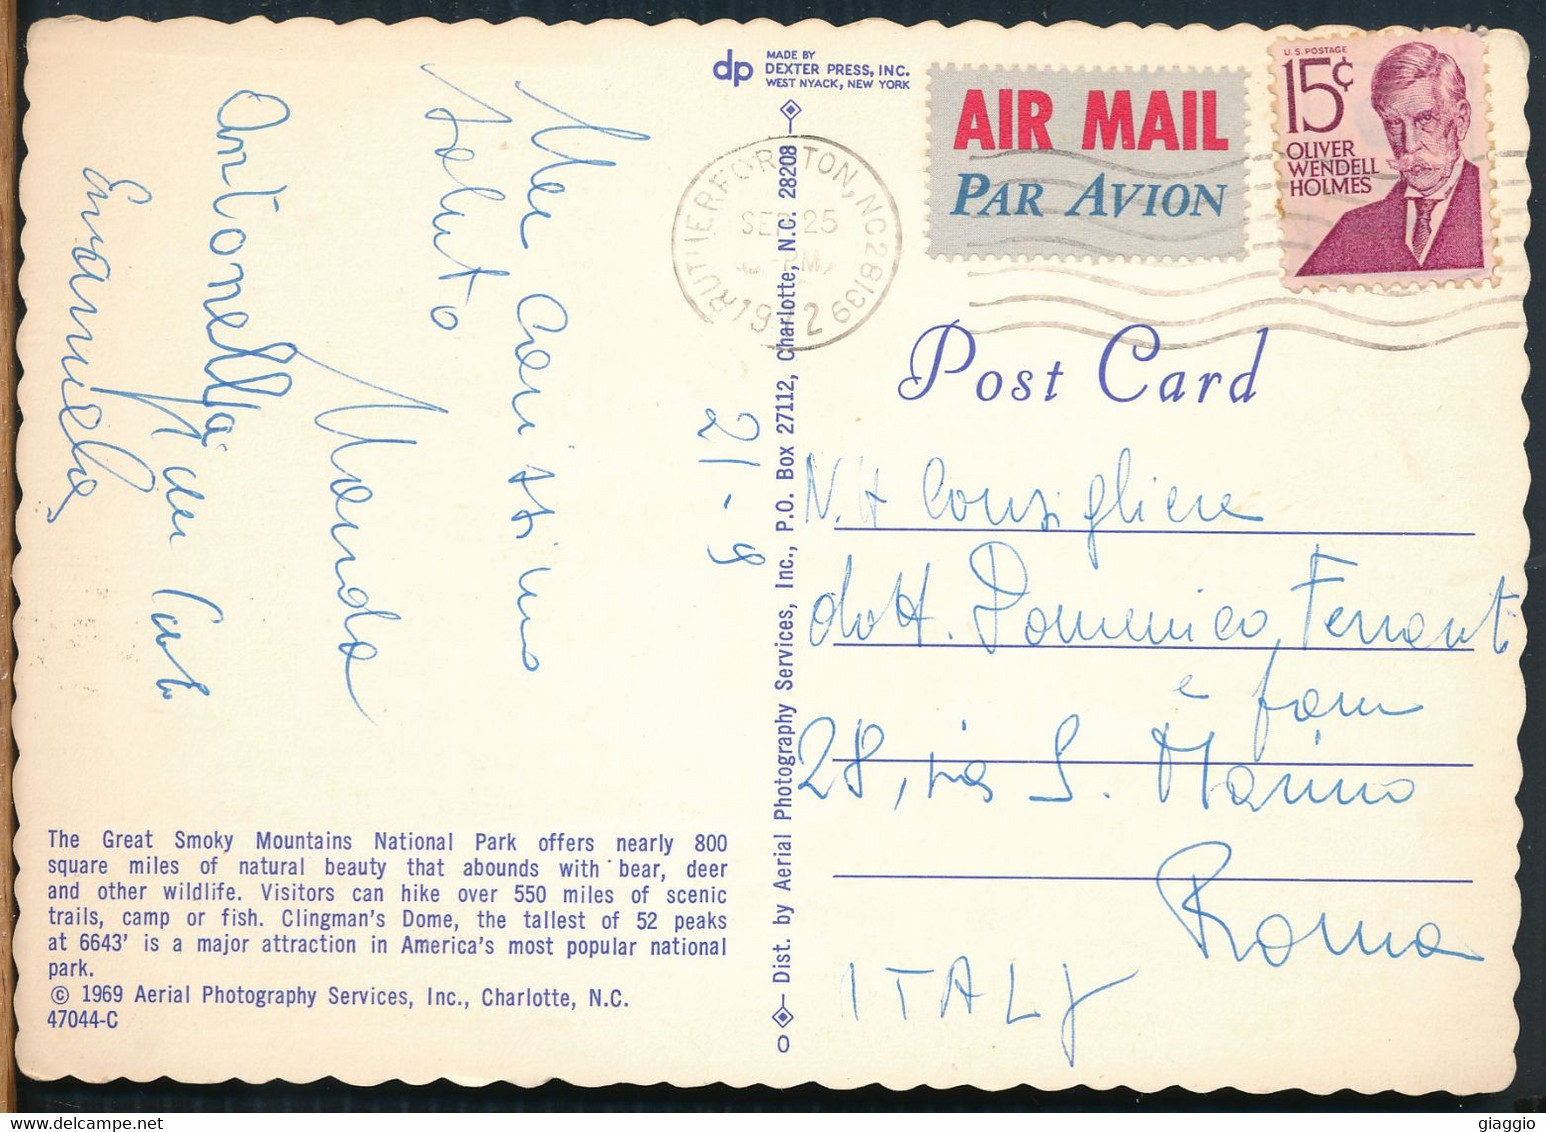 Un Carissimo
saluto
Wanda
Antonella
Emanuela
21-9
The Great Smoky Mountains National Park offers nearly 800
square miles of natural beauty that abounds with bear, deer
and other wildlife. Visitors can hike over 550 miles of scenic
trails, camp or fish. Clingman's Dome, the tallest of 52 peaks
at 6643' is a major attraction in America's most popular national
park.
© 1969 Aerial Photography Services, Inc., Charlotte, N.C.
47044-C
dp
MADE BY
DEXTER PRESS, INC.
WEST NYACK, NEW YORK
Dist. by Aerial Photography Services, Inc., P.O. Box 27112, Charlotte, N.C. 28208
RUTHERFORDTON, NC 28139
SEP 25
PM
1972
AIR MAIL
PAR AVION
U.S. POSTAGE
15¢
OLIVER
WENDELL
HOLMES
Post Card
N.H Consigliere
dott. Domenico Ferranti
e fam
28, via S. Marino
Roma
ITALY
giaggio